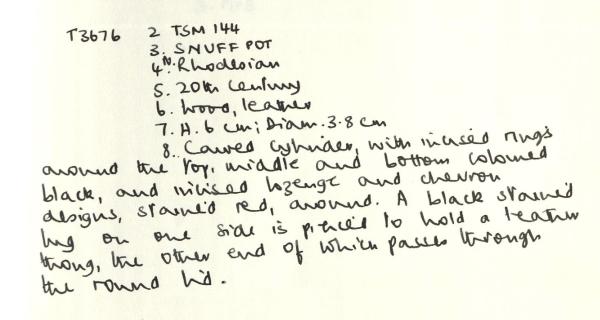 T3676 2 TSM 144
3. SNUFF POT
4. N. Rhodesian
5. 20th Century
6. Wood, leather
7. H. 6 cm; Diam. 3.8 cm
8. Carved cylinder, with incised rings
around the top, middle and bottom coloured
black, and incised lozenge and chevron
designs, stained red, around. A black stained
lug on one side is pierced to hold a leather
thong, the other end of which passes through
the round lid.